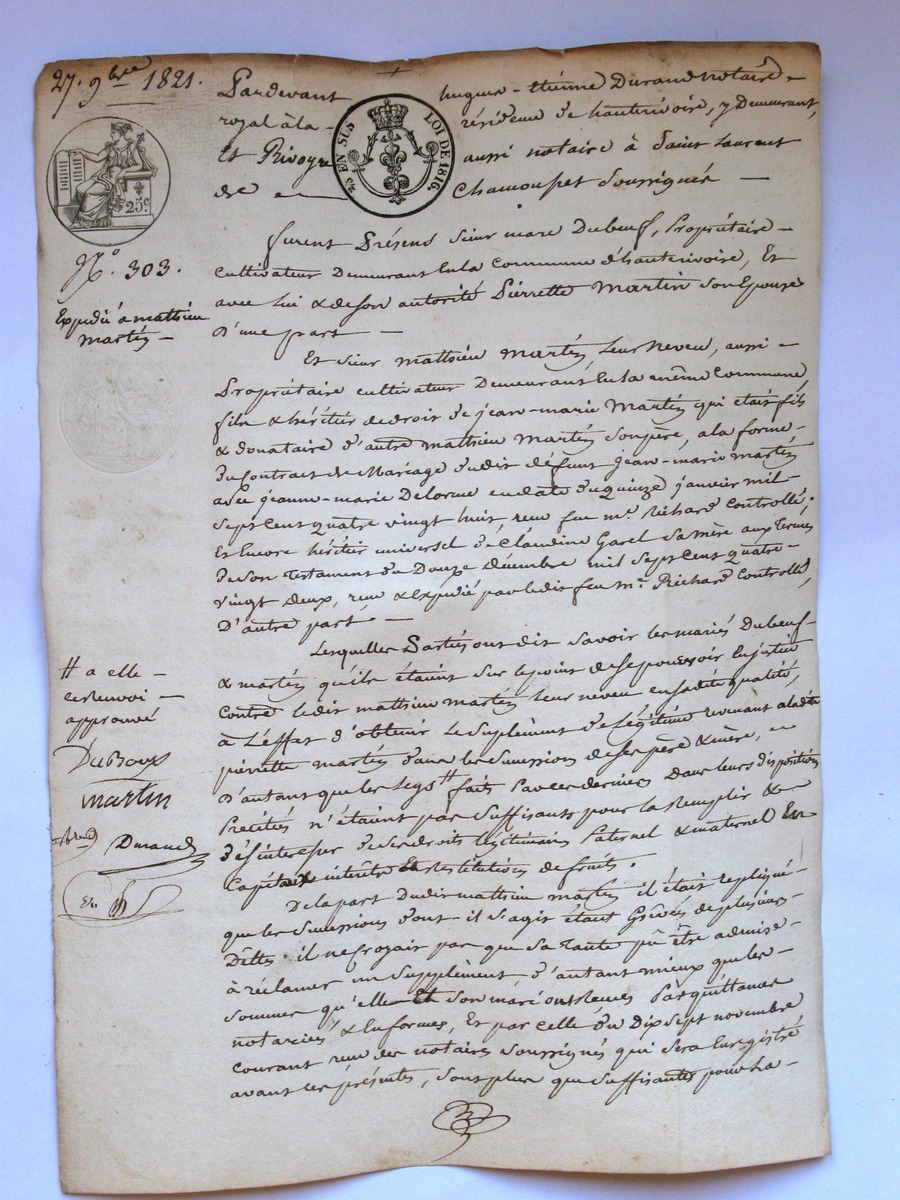 27. 9bre 1821.
Pardevant hugues-étienne Durand notaire
royal à la résidence de hauterivoire, y demeurant,
Et Rivoyre aussi notaire à Saint Laurent
de Chamousset soussignés —
25 EN SUS LOI DE 1816.
25c.
N.º 303.
Expédié à mathieu
martin —
furent Présens sieur marc Dubeuf, Propriétaire
cultivateur Demeurant en la commune d'hauterivoire, Et
avec lui & de son autorité Pierrette Martin son Epouse
D'une part —
Et sieur mathieu martin, leur neveu, aussi
Propriétaire cultivateur Demeurant en la même Commune
fils & héritier de droit de jean-marie Martin qui était fils
& donataire d'autre mathieu Martin son père, a la forme
du Contrat de Mariage dudit défunt jean-marie martin
avec jeanne-marie Delorme en date du quinze janvier mil
sept cent quatre vingt huit, reçu feu mr. Richard Controllé;
Et Encore héritier universel de Claudine Garel sa mère aux termes
de son testament du Douze Décembre mil sept cent quatre
vingt deux, reçu & expédié par ledit feu mr. Richard Controllé,
D'autre part —
Lesquelles Parties ont dit savoir les mariés Dubeuf
& martin qu'ils étaient sur le point de se pourvoir En justice
Contre ledit mathieu martin leur neveu en sadite qualité,
à L'effet d'obtenir le suplément de légitime revenant a ladite
pierrette martin dans les succession de ses père & mère,
D'autant que les legs # faits Par ces derniers Dans leurs dispositions
Précitées n'étaient pas suffisants pour la Remplir &
Désintéresser de ses droits légitimaires Paternel & maternel En
Capitaux intérêts Et restitutions de fruits.
# a elle
ce renvoi
approuvé
Martin
Durand
De la part dudit mathieu martin il était repliqué
que les successions dont-il s'agit étant Grévées de plusieurs
Dettes. il ne croyait pas que sa tante pû être admise
à réclamer un supplément, d'autant mieux que les
sommes qu'elle Et son mari ont reçues Par quittances
notariées & En formes, Et par celle du Dix sept novembre
courant reçue des notaires soussignés qui sera Enregistré
avant les présentes, sont plus que suffisantes pour la